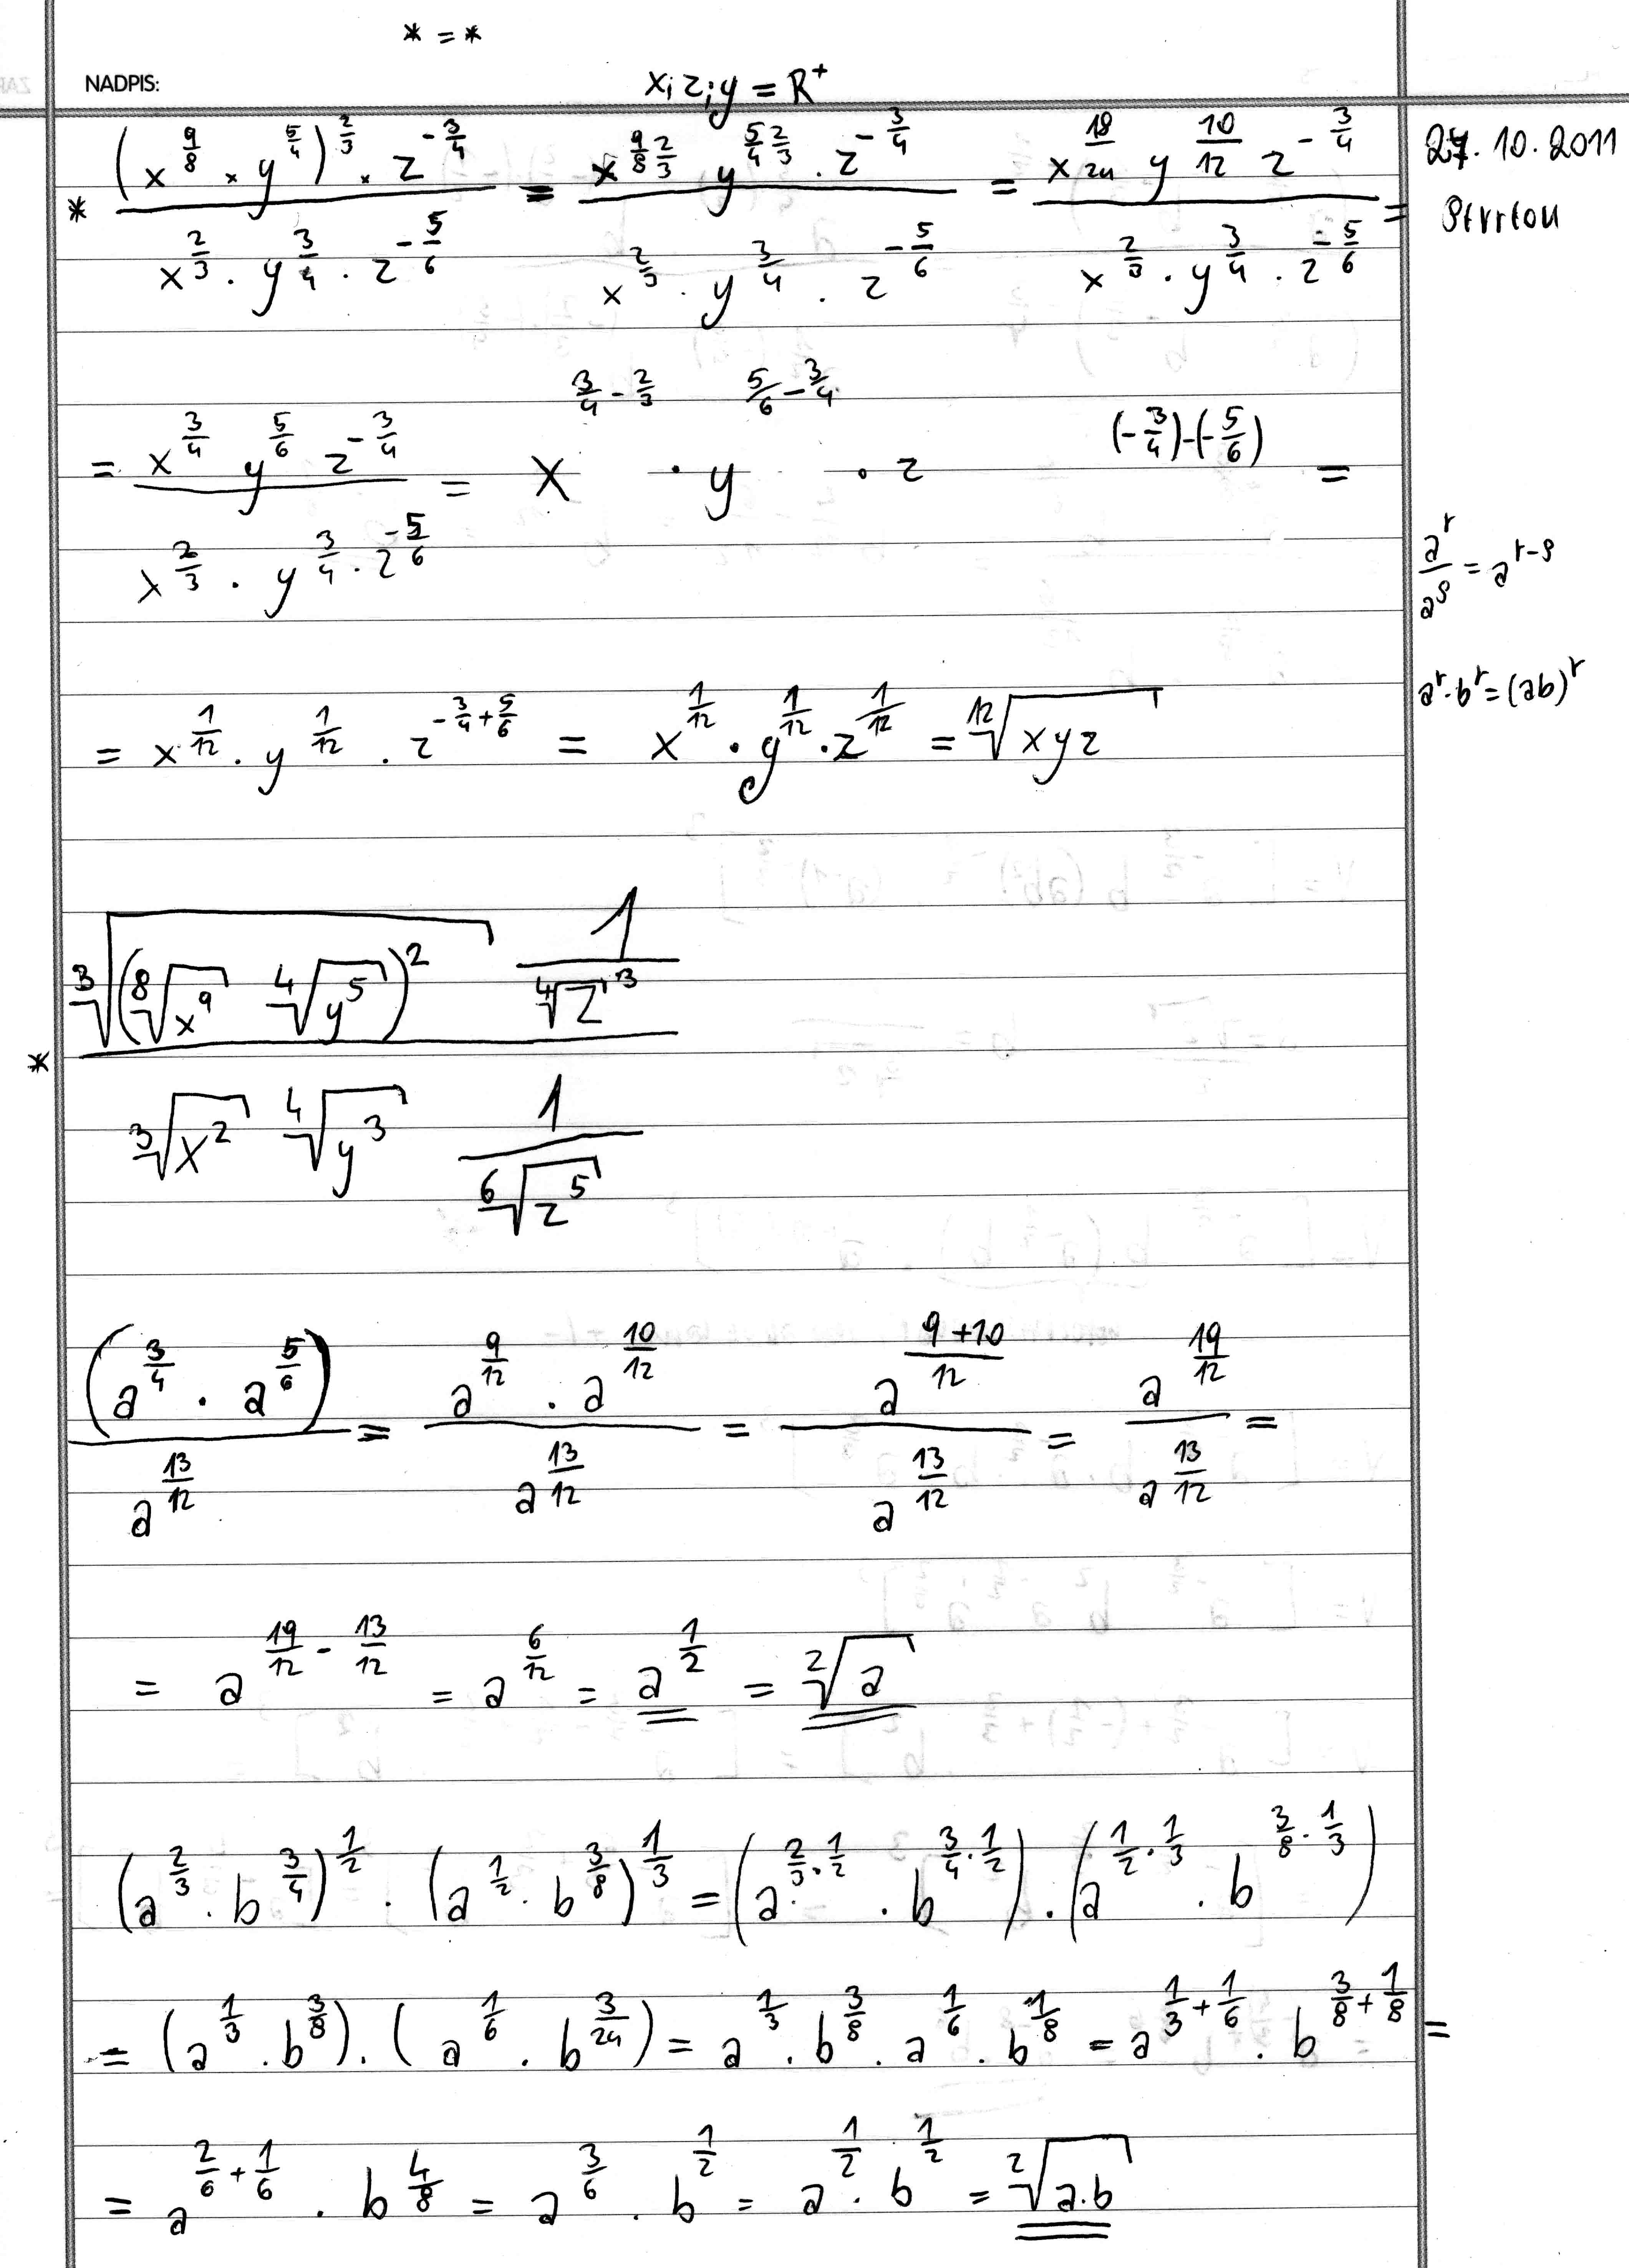 * = *
NADPIS:
x; z; y = R⁺
27. 10. 2011
* (x^(9/8) × y^(5/4))^(2/3) × z^(-3/4) / (x^(2/3) · y^(3/4) · z^(-5/6)) = x^(9/8 2/3) y^(5/4 2/3) · z^(-3/4) / (x^(2/3) · y^(3/4) · z^(-5/6)) = x^(18/24) y^(10/12) z^(-3/4) / (x^(2/3) · y^(3/4) · z^(-5/6)) =
= x^(3/4) y^(5/6) z^(-3/4) / (x^(2/3) · y^(3/4) · z^(-5/6)) = x^(3/4 - 2/3) · y^(5/6 - 3/4) · z^((-3/4)-(-5/6)) =
a^r / a^s = a^(r-s)
a^r · b^r = (ab)^r
= x^(1/12) · y^(1/12) · z^(-3/4 + 5/6) = x^(1/12) · y^(1/12) · z^(1/12) = ¹²√(xyz)
* ³√((⁸√(x⁹) ⁴√(y⁵))²) 1/⁴√(z)³ / (³√(x²) ⁴√(y³) 1/⁶√(z⁵))
(a^(3/4) · a^(5/6)) / a^(13/12) = a^(9/12) · a^(10/12) / a^(13/12) = a^((9+10)/12) / a^(13/12) = a^(19/12) / a^(13/12) =
= a^(19/12 - 13/12) = a^(6/12) = a^(1/2) = ²√a
(a^(2/3) · b^(3/4))^(1/2) · (a^(1/2) · b^(3/8))^(1/3) = (a^(2/3 · 1/2) · b^(3/4 · 1/2)) · (a^(1/2 · 1/3) · b^(3/8 · 1/3))
= (a^(1/3) · b^(3/8)) · (a^(1/6) · b^(3/24)) = a^(1/3) · b^(3/8) · a^(1/6) · b^(1/8) = a^(1/3 + 1/6) · b^(3/8 + 1/8) =
= a^(2/6 + 1/6) · b^(4/8) = a^(3/6) · b^(1/2) = a^(1/2) · b^(1/2) = ²√(a·b)